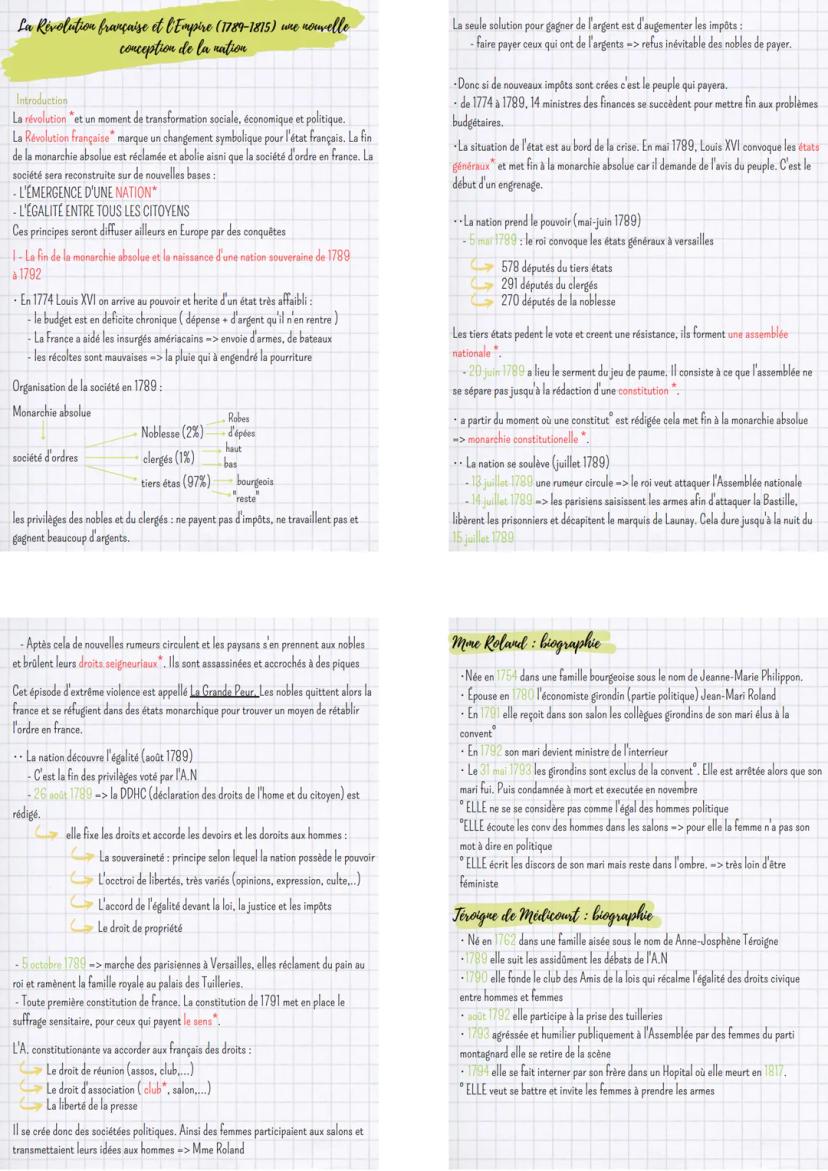 La Révolution française et l'Empire (1789-1815) une nouvelle
conception de la nation
Introduction
La révolution * et un moment de transformation sociale, économique et politique.
La Révolution française* marque un changement symbolique pour l'état français. La fin
de la monarchie absolue est réclamée et abolie aisni que la société d'ordre en france. La
société sera reconstruite sur de nouvelles bases :
- L'ÉMERGENCE D'UNE NATION*
- L'ÉGALITÉ ENTRE TOUS LES CITOYENS
Ces principes seront diffuser ailleurs en Europe par des conquêtes
I - La fin de la monarchie absolue et la naissance d'une nation souveraine de 1789
à 1792
· En 1774 Louis XVI on arrive au pouvoir et herite d'un état très affaibli :
- le budget est en deficite chronique ( dépense + d'argent qu'il n'en rentre )
- La France a aidé les insurgés amériacains => envoie d'armes, de bateaux
- les récoltes sont mauvaises => la pluie qui à engendré la pourriture
Organisation de la société en 1789 :
Monarchie absolue
société d'ordres
Noblesse (2%)
Robes
d'épées
clergés (1%)
haut
bas
tiers étas (97%)
bourgeois
"reste"
les privilèges des nobles et du clergés : ne payent pas d'impôts, ne travaillent pas et
gagnent beaucoup d'argents.
La seule solution pour gagner de l'argent est d'augmenter les impôts :
- faire payer ceux qui ont de l'argents => refus inévitable des nobles de payer.
·Donc si de nouveaux impôts sont crées c'est le peuple qui payera.
· de 1774 à 1789, 14 ministres des finances se succèdent pour mettre fin aux problèmes
budgétaires.
·La situation de l'état est au bord de la crise. En mai 1789, Louis XVI convoque les états
généraux* et met fin à la monarchie absolue car il demande de l'avis du peuple. C'est le
début d'un engrenage.
··La nation prend le pouvoir (mai-juin 1789)
- 5 mai 1789 : le roi convoque les états généraux à versailles
578 députés du tiers états
291 députés du clergés
270 députés de la noblesse
Les tiers états pedent le vote et creent une résistance, ils forment une assemblée
nationale *.
- 20 juin 1789 a lieu le serment du jeu de paume. Il consiste à ce que l'assemblée ne
se sépare pas jusqu'à la rédaction d'une constitution *.
· a partir du moment où une constitut° est rédigée cela met fin à la monarchie absolue
=> monarchie constitutionelle *.
·· La nation se soulève (juillet 1789)
- 13 juillet 1789 une rumeur circule => le roi veut attaquer l'Assemblée nationale
- 14 juillet 1789 => les parisiens saisissent les armes afin d'attaquer la Bastille,
libèrent les prisonniers et décapitent le marquis de Launay. Cela dure jusqu'à la nuit du
15 juillet 1789
- Aptès cela de nouvelles rumeurs circulent et les paysans s'en prennent aux nobles
et brûlent leurs droits seigneuriaux*. Ils sont assassinées et accrochés à des piques
Cet épisode d'extrême violence est appellé La Grande Peur. Les nobles quittent alors la
france et se réfugient dans des états monarchique pour trouver un moyen de rétablir
l'ordre en france.
·· La nation découvre l'égalité (août 1789)
- C'est la fin des privilèges voté par l'A.N
- 26 août 1789 => la DDHC (déclaration des droits de l'home et du citoyen) est
rédigé.
elle fixe les droits et accorde les devoirs et les doroits aux hommes :
La souveraineté : principe selon lequel la nation possède le pouvoir
L'occtroi de libertés, très variés (opinions, expression, culte,..)
L'accord de l'égalité devant la loi, la justice et les impôts
Le droit de propriété
- 5 octobre 1789 => marche des parisiennes à Versailles, elles réclament du pain au
roi et ramènent la famille royale au palais des Tuilleries.
- Toute première constitution de france. La constitution de 1791 met en place le
suffrage sensitaire, pour ceux qui payent le sens*.
L'A. constitutionante va accorder aux français des droits :
Le droit de réunion (assos, club,...)
Le droit d'association ( club*, salon,...)
La liberté de la presse
Il se crée donc des sociétées politiques. Ainsi des femmes participaient aux salons et
transmettaient leurs idées aux hommes => Mme Roland
Mme Roland : biographie
·Née en 1754 dans une famille bourgeoise sous le nom de Jeanne-Marie Philippon.
· Épouse en 1780 l'économiste girondin (partie politique) Jean-Mari Roland
· En 1791 elle reçoit dans son salon les collègues girondins de son mari élus à la
convent°
· En 1792 son mari devient ministre de l'interrieur
· Le 31 mai 1793 les girondins sont exclus de la convent°. Elle est arrêtée alors que son
mari fui. Puis condamnée à mort et executée en novembre
° ELLE ne se se considère pas comme l'égal des hommes politique
°ELLE écoute les conv des hommes dans les salons => pour elle la femme n'a pas son
mot à dire en politique
° ELLE écrit les discors de son mari mais reste dans l'ombre. => très loin d'être
féministe
Téroigne de Médicourt : biographie
· Né en 1762 dans une famille aisée sous le nom de Anne-Josphène Téroigne
·1789 elle suit les assidûment les débats de l'A.N
·1790 elle fonde le club des Amis de la loi qui récalme l'égalité des droits civique
entre hommes et femmes
· août 1792 elle participe à la prise des tuilleries
· 1793 agréssée et humilier publiquement à l'Assemblée par des femmes du parti
montagnard elle se retire de la scène
· 1794 elle se fait interner par son frère dans un Hopital où elle meurt en 1817.
° ELLE veut se battre et invite les femmes à prendre les armes